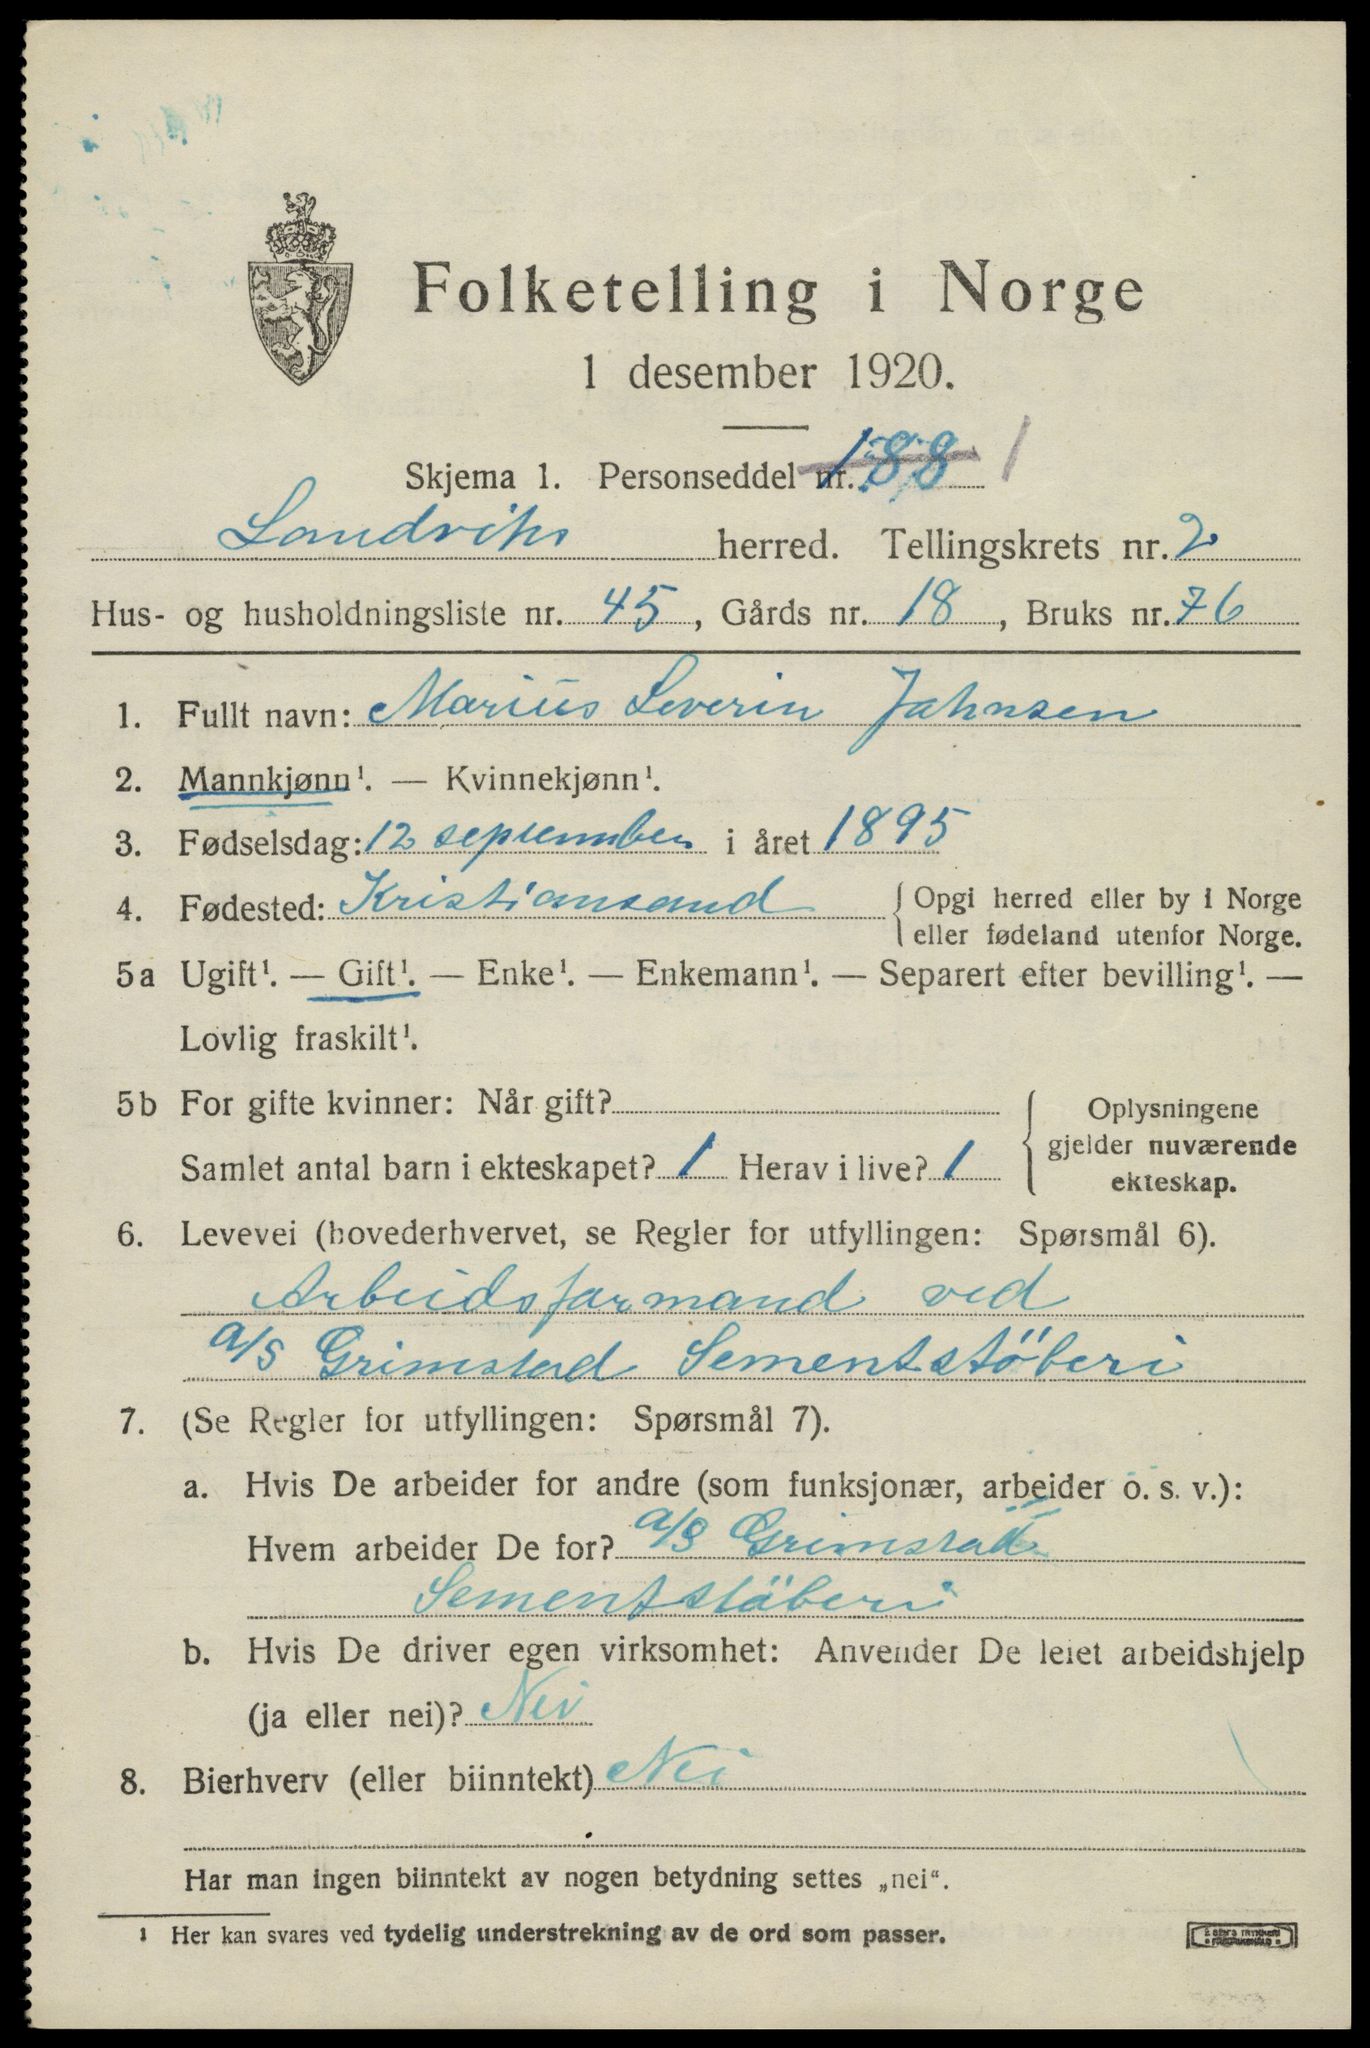 Folketelling i Norge
1 desember 1920.
Skjema 1. Personseddel nr. 188 1
Landviks herred. Tellingskrets nr. 2
Hus- og husholdningsliste nr. 45, Gårds nr. 18, Bruks nr. 76
1. Fullt navn: Marius Severin Jahnsen
2. Mannkjønn¹. — Kvinnekjønn¹.
3. Fødselsdag: 12 september i året 1895
4. Fødested: Kristiansand { Opgi herred eller by i Norge
eller fødeland utenfor Norge.
5a Ugift¹. — Gift¹. — Enke¹. — Enkemann¹. — Separert efter bevilling¹. —
Lovlig fraskilt¹.
5b For gifte kvinner: Når gift?
Samlet antal barn i ekteskapet? 1 Herav i live? 1
{ Oplysningene
gjelder nuværende
ekteskap.
6. Levevei (hovederhvervet, se Regler for utfyllingen: Spørsmål 6).
Arbeidsformand ved
a/s Grimstad Sementstöberi
7. (Se Regler for utfyllingen: Spørsmål 7).
a. Hvis De arbeider for andre (som funksjonær, arbeider o. s. v.):
Hvem arbeider De for? a/s Grimstad
Sementstöberi
b. Hvis De driver egen virksomhet: Anvender De leiet arbeidshjelp
(ja eller nei)? Nei
8. Bierhverv (eller biinntekt) Nei
Har man ingen biinntekt av nogen betydning settes „nei“.
¹ Her kan svares ved tydelig understrekning av de ord som passer.